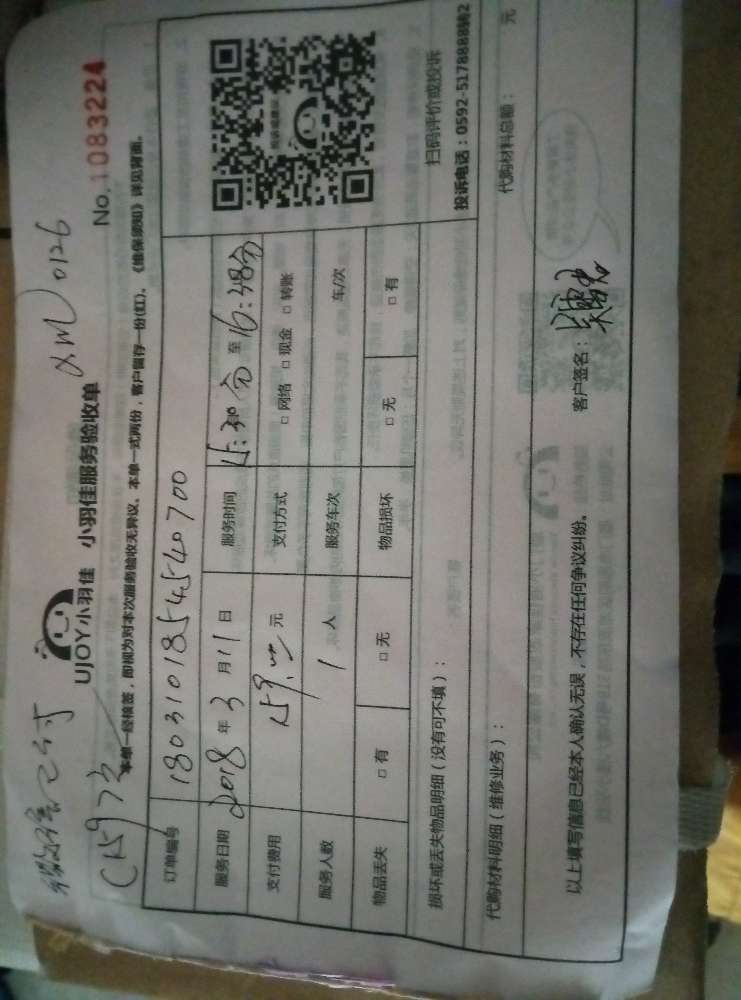 微信已付
(159元
UJOY小羽佳 小羽佳服务验收单
xm 0126
No.1083224
本单一经核签，即视为对本次服务验收无异议。本单一式两份，客户留存一份(红)。《维保须知》详见背面。
订单编号 180310185454540700
服务日期 2018 年 3 月 11 日 服务时间 15:30分 至 16:48分
支付费用 159.00 元 支付方式 □ 网络 □ 现金 □ 转账
服务人数 1 人 服务车次 车/次
物品丢失 □ 有 □ 无 物品损坏 □ 无 □ 有
扫码评价或投诉
投诉电话：0592-5178888转2
损坏或丢失物品明细（没有可不填）：
代购材料明细（维修业务）： 代购材料总额： 元
以上填写信息已经本人确认无误，不存在任何争议纠纷。 客户签名：